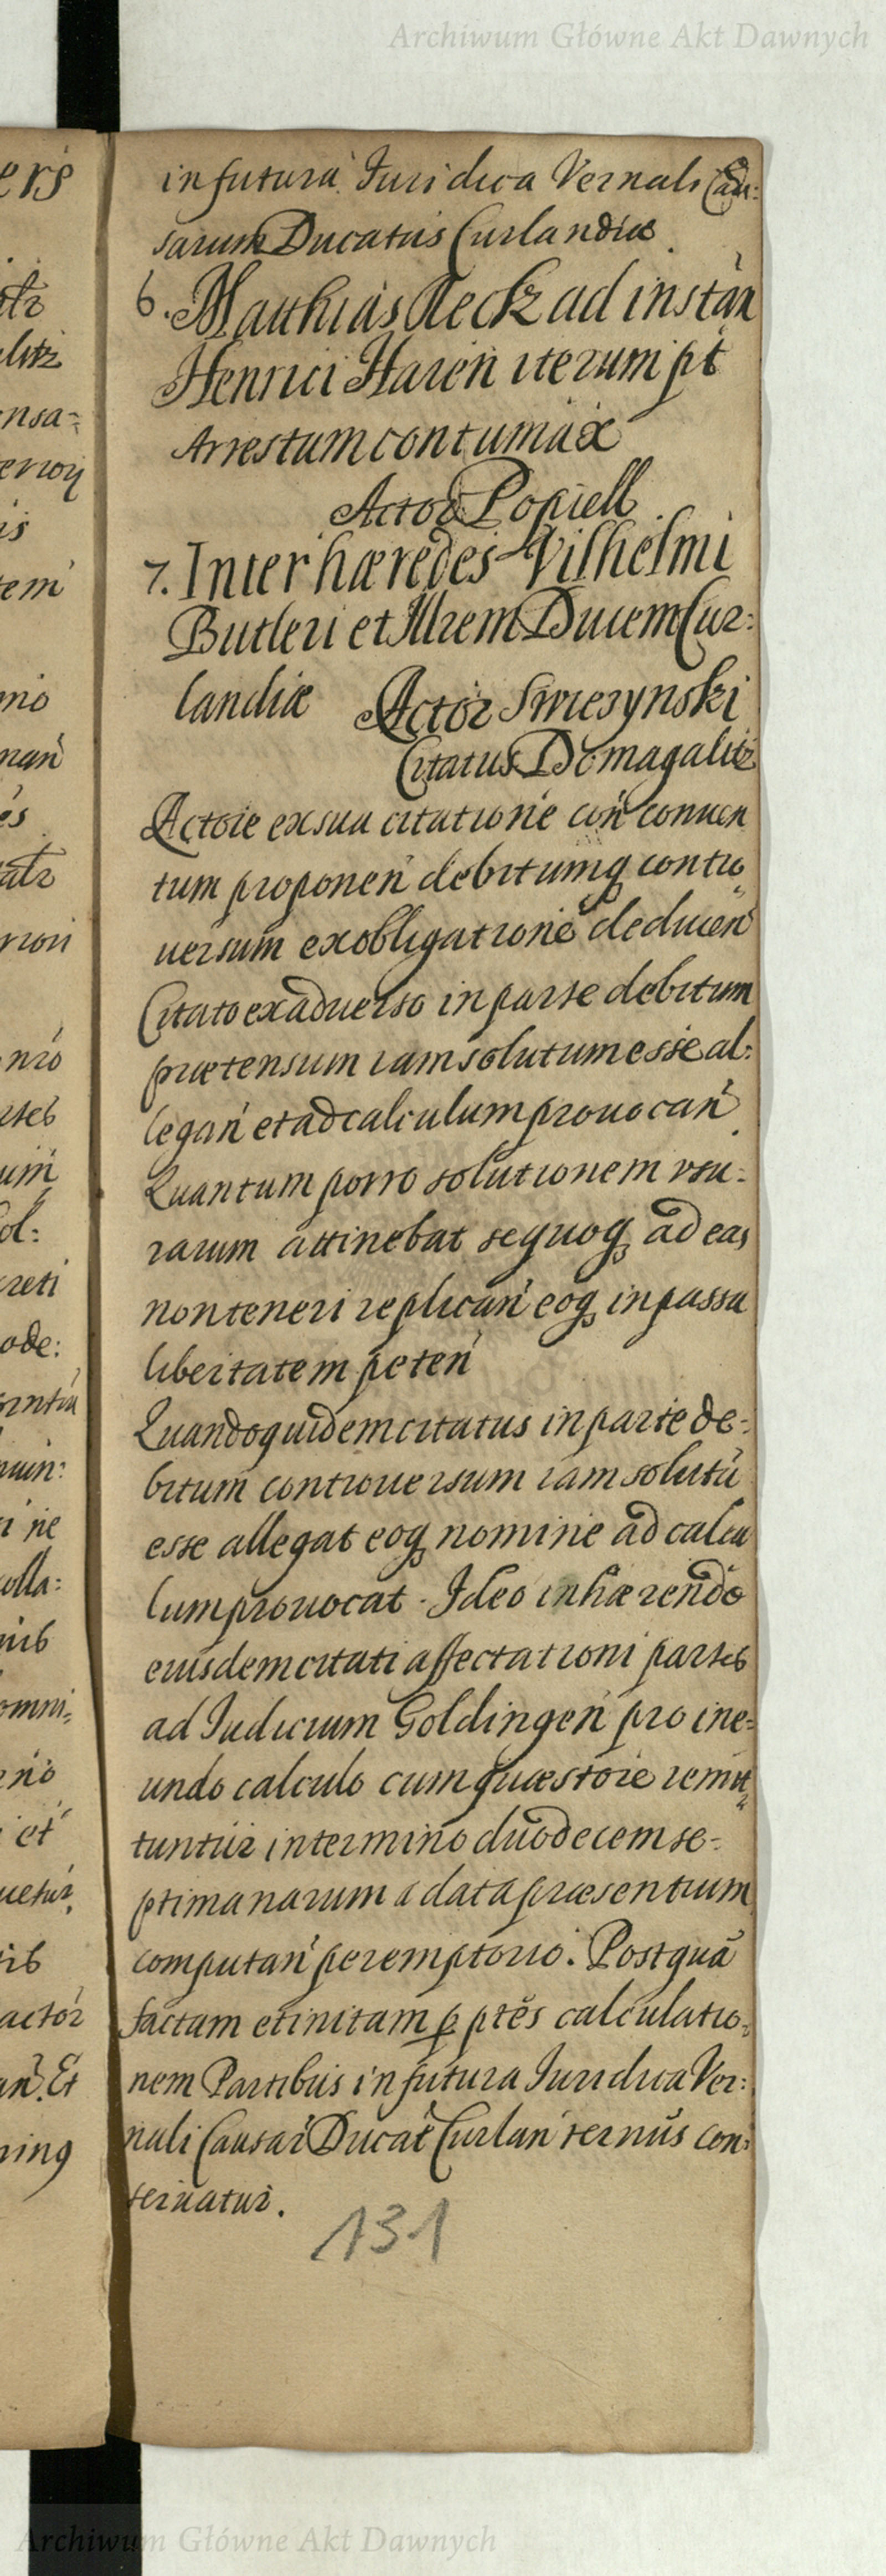 Archiwum Główne Akt Dawnych
in futurâ Juridica Vernali Cau:
sarum Ducatus Curlandiæ
6. Matthias Reck ad instan
Henrici Haren iterum pt
Arrestum contumax
Actor Popiell
7. Inter hæredes Vilhelmi
Butleri et Illrem Ducem Cur:
landiæ Actor Swiesynski
Citatus Domagalitz
Actore ex sua citatione con conuen
tum proponen debitumq contro
uersum ex obligatione deducen
Citato ex aduerso in parte debitum
prætensum iam solutum esse al:
legan et ad calculum prouocan
Quantum porro solutionem vsu:
rarum attinebat se quoq ad eas
non teneri replican eoq in passu
libertatem peten
Quandoquidem citatus in parte de:
bitum controuersum iam solutū
esse allegat eoq nomine ad calcu
lum prouocat. Ideo inhærendo
eiusdem citati affectationi partes
ad Judicium Goldingen pro ine:
undo calculo cum quæstore remit
tuntur in termino duodecem se:
ptimanarum a data præsentium
computan peremptorio. Postquā
factam et initam p ptes calculatio:
nem Partibus in futura Juridica Ver:
nali Causar Ducat Curlan ternus con:
seruatur.
131
ers
atr
litz
ensa:
is
tem
mo
nan
es
atr
nro
um
ol:
reti
ode:
ne
olla:
omni:
et
uetur
actor
an. Et
Archiwum Główne Akt Dawnych